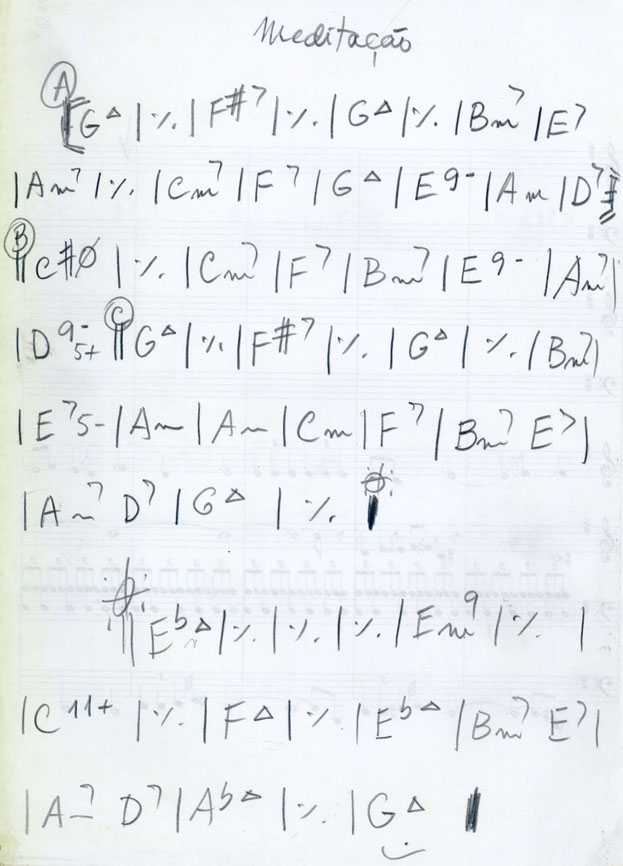 Meditação
A
[G△ | ٪. | F#7 | ٪. | G△ | ٪. | Bm7 | E7
| Am7 | ٪. | Cm7 | F7 | G△ | E9- | Am | D7 ]
B
|| C#ø | ٪. | Cm7 | F7 | Bm7 | E9- | Am7 |
| D9-5+ || C G△ | ٪. | F#7 | ٪. | G△ | ٪. | Bm7 |
| E75- | Am | Am | Cm | F7 | Bm7 E7 |
| Am7 D7 | G△ | ٪. |
|| Eb△ | ٪. | ٪. | ٪. | Em9 | ٪. |
| C11+ | ٪. | F△ | ٪. | Eb△ | Bm7 E7 |
| Am7 D7 | Ab△ | ٪. | G△ |